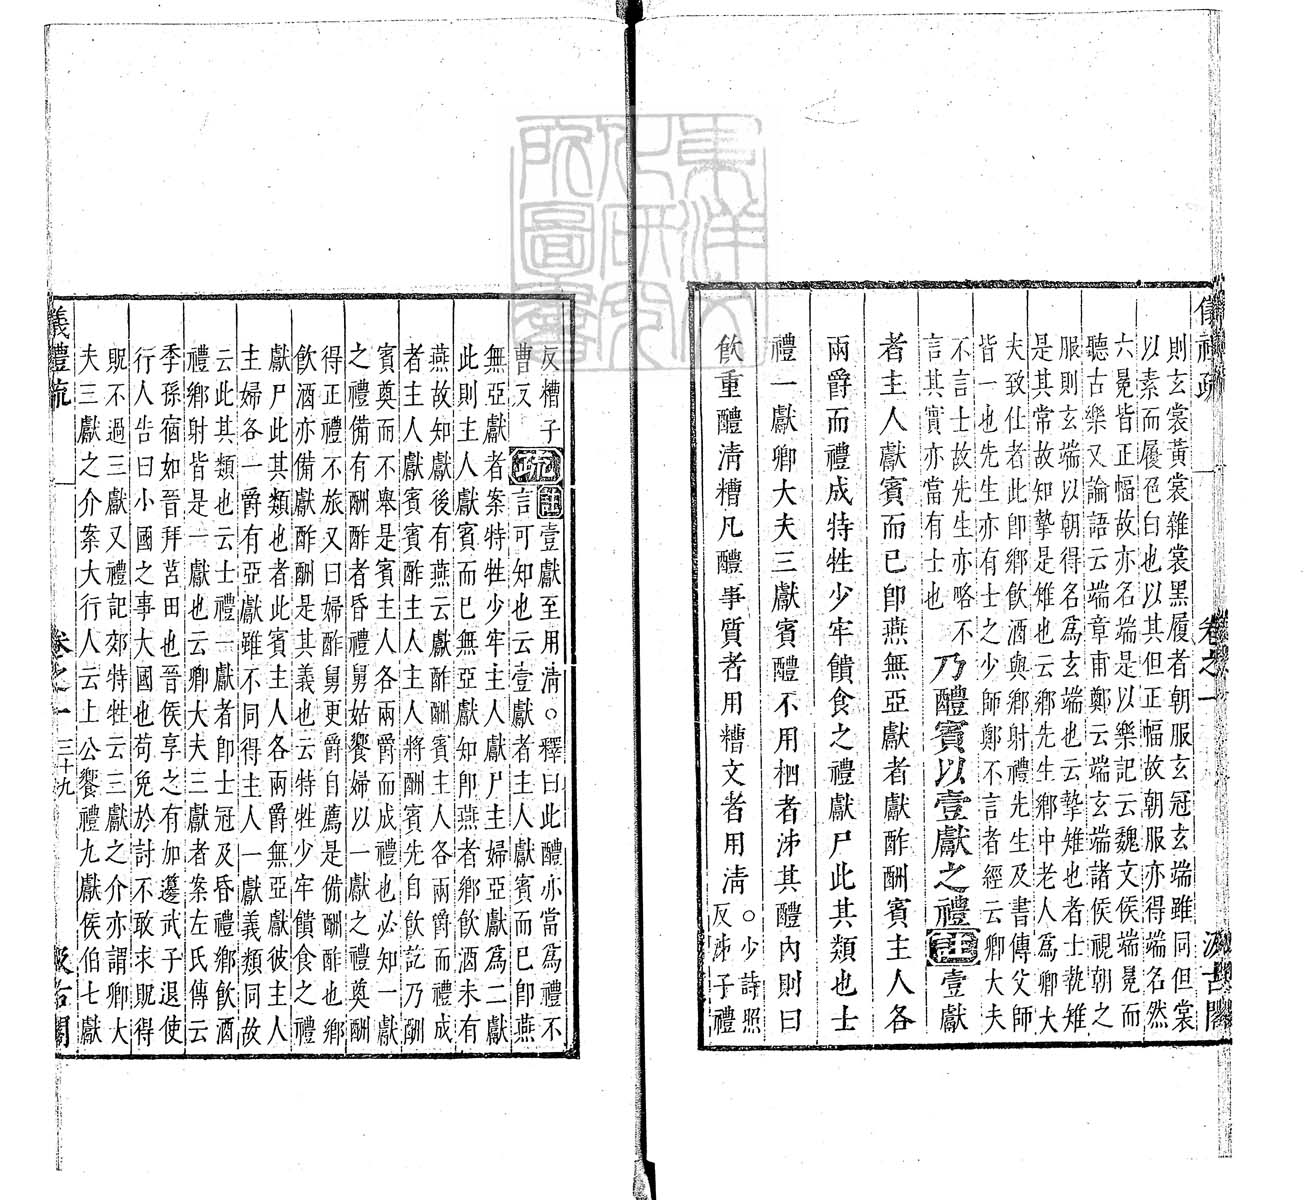 儀禮疏 卷之一 汲古閣
則玄裳黃裳雜裳黑履者朝服玄冠玄端雖同但裳
以素而履色白也以其但正幅故朝服亦得端名然
六冕皆正幅故亦名端是以樂記云魏文侯端冕而
聽古樂又論語云端章甫鄭云端玄端諸侯視朝之
服則玄端以朝得名爲玄端也云摯雉也者士執雉
是其常故知摯是雉也云鄉先生鄉中老人爲卿大
夫致仕者此卽鄉飲酒與鄉射禮先生及書傳父師
皆一也先生亦有士之少師鄭不言者經云卿大夫
不言士故先生亦略不
言其實亦當有士也
乃醴賓以壹獻之禮 註 壹獻
者主人獻賓而已卽燕無亞獻者獻酢酬賓主人各
兩爵而禮成特牲少牢饋食之禮獻尸此其類也士
禮一獻卿大夫三獻賓醴不用柶者泲其醴內則曰
飮重醴淸糟凡醴事質者用糟文者用淸
○少詩照
反泲子禮
反糟子
曹反
疏 註 壹獻至用淸○釋曰此醴亦當爲禮不
言可知也云壹獻者主人獻賓而已卽燕
無亞獻者案特牲少牢主人獻尸主婦亞獻爲二獻
此則主人獻賓而已無亞獻知卽燕者鄉飲酒未有
燕故知獻後有燕云獻酢酬賓主人各兩爵而禮成
者主人獻賓賓酢主人主人將酬賓先自飲訖乃酬
賓賓奠而不舉是賓主人各兩爵而成禮也必知一獻
之禮備有酬酢者昏禮舅姑饗婦以一獻之禮奠酬
得正禮不旅又曰婦酢舅更爵自薦是備酬酢也鄉
飲酒亦備獻酢酬是其義也云特牲少牢饋食之禮
獻尸此其類也者此賓主人各兩爵無亞獻彼主人
主婦各一爵有亞獻雖不同得主人一獻義類同故
云此其類也云士禮一獻者卽士冠及昏禮鄉飲酒
禮鄉射皆是一獻也云卿大夫三獻者案左氏傳云
季孫宿如晉拜莒田也晉侯享之有加籩武子退使
行人告曰小國之事大國也苟免於討不敢求貺得
貺不過三獻又禮記郊特牲云三獻之介亦謂卿大
夫三獻之介案大行人云上公饗禮九獻侯伯七獻
儀禮疏 卷之一 三十九 汲古閣
東洋文化研究所圖書